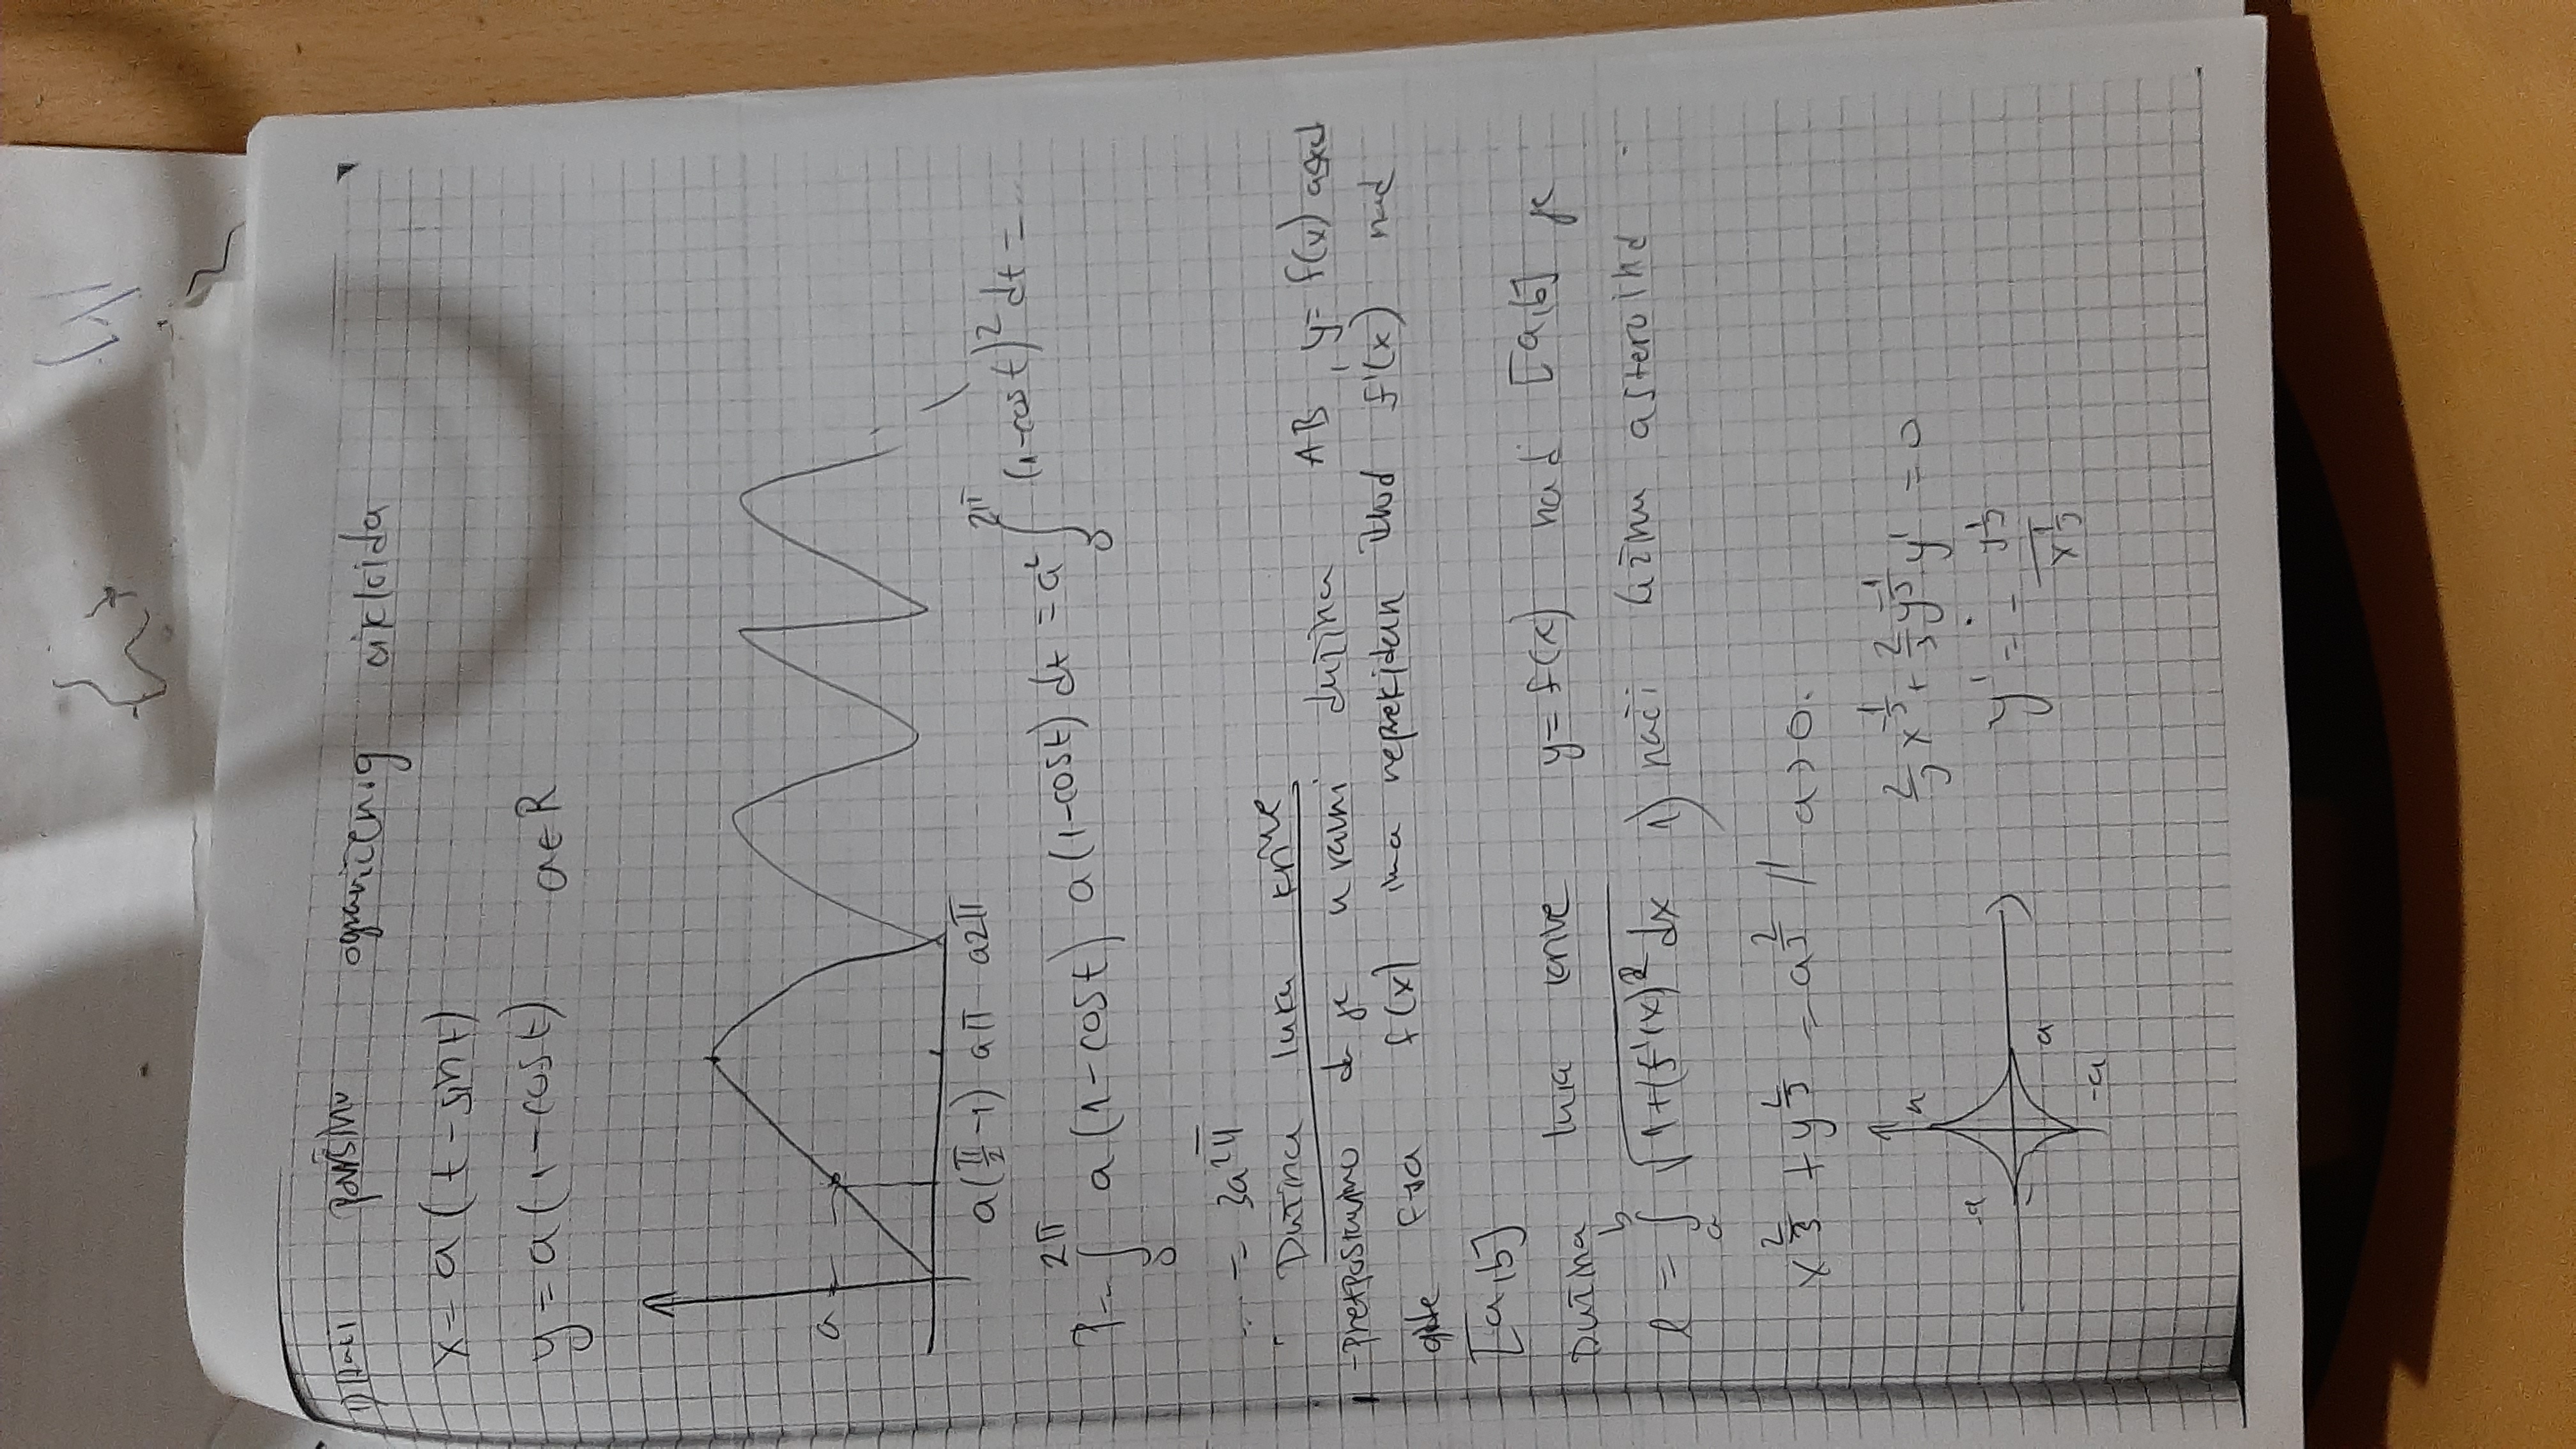 1) Naći površinu ograničenog cikloida
x = a(t - sin t)
y = a(1 - cos t) a ∈ R
a
a(π/2 - 1) aπ a2π
P = ∫₀^{2π} a(1 - cos t) a(1 - cos t) dt = a² ∫₀^{2π} (1 - cos t)² dt = ...
... = 3a²π
Dužina luka krive
- pretpostavimo da je u ravni dužina AB, y = f(x)
gde f-ja f(x) ima neprekidan izvod f'(x) nad
[a,b]
Dužina luka krive y = f(x) nad [a,b] je
l = ∫ₐᵇ √(1 + (f'(x))² dx 1) naći dužinu asteroide
x^{2/3} + y^{2/3} = a^{2/3} // a > 0.
a
-a
a
-a
2/3 x^{-1/3} + 2/3 y^{-1/3} y' = 0
y' = - y^{1/3} / x^{1/3}